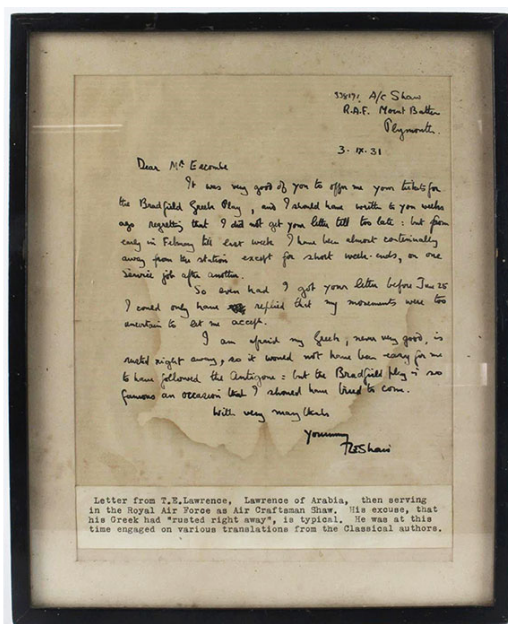 338171 A/c Shaw
R.A.F. Mount Batten
Plymouth.
3. IX. 31
Dear Mr Escombe
It was very good of you to offer me your tickets for
the Bradfield Greek Play, and I should have written to you weeks
ago regretting that I did not get your letter till too late: but from
early in February till last week I have been almost continually
away from the station except for short week-ends, on one
service job after another.
So even had I got your letter before Jun 25
I could only have replied that my movements were too
uncertain to let me accept.
I am afraid my Greek, never very good, is
rusted right away, so it would not have been easy for me
to have followed the Antigone: but the Bradfield play is so
famous an occasion that I should have liked to come.
With very many thanks
Yours
T E Shaw
Letter from T.E.Lawrence, Lawrence of Arabia, then serving
in the Royal Air Force as Air Craftsman Shaw. His excuse, that
his Greek had "rusted right away", is typical. He was at this
time engaged on various translations from the Classical authors.